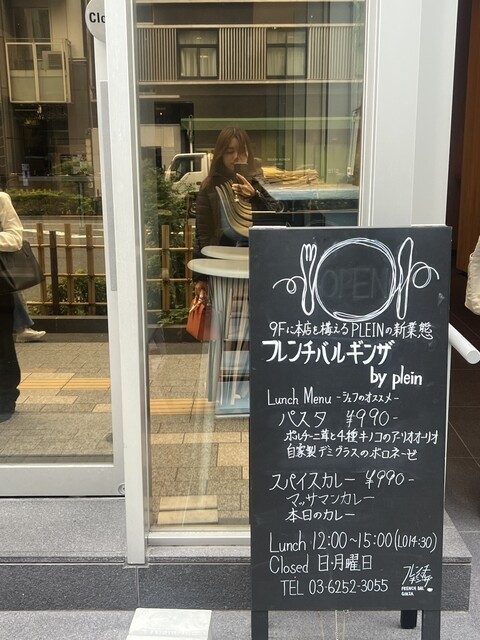 Clo
OPEN
9Fに本店を構えるPLEINの新業態
フレンチバルギンザ
by plein
Lunch Menu -シェフのオススメ-
パスタ ¥990-
ポルチーニ茸と4種キノコのアーリオオーリオ
自家製デミグラスのボロネーゼ
スパイスカレー ¥990-
マッサマンカレー
本日のカレー
Lunch 12:00~15:00(LO14:30)
Closed 日・月曜日
TEL 03-6252-3055
フレンチバルギンザ
FRENCH BAR
GINZA